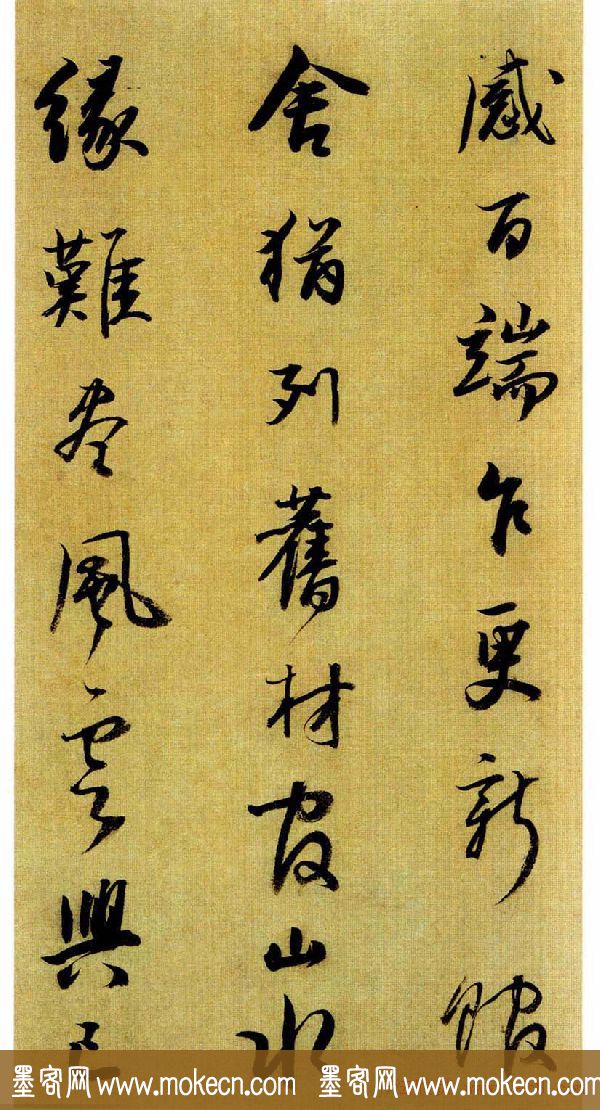 感百端乍更新館
舍猶列舊材官山水
緣難盡風雲興
墨客网 www.mokecn.com 墨客网 www.mokecn.com